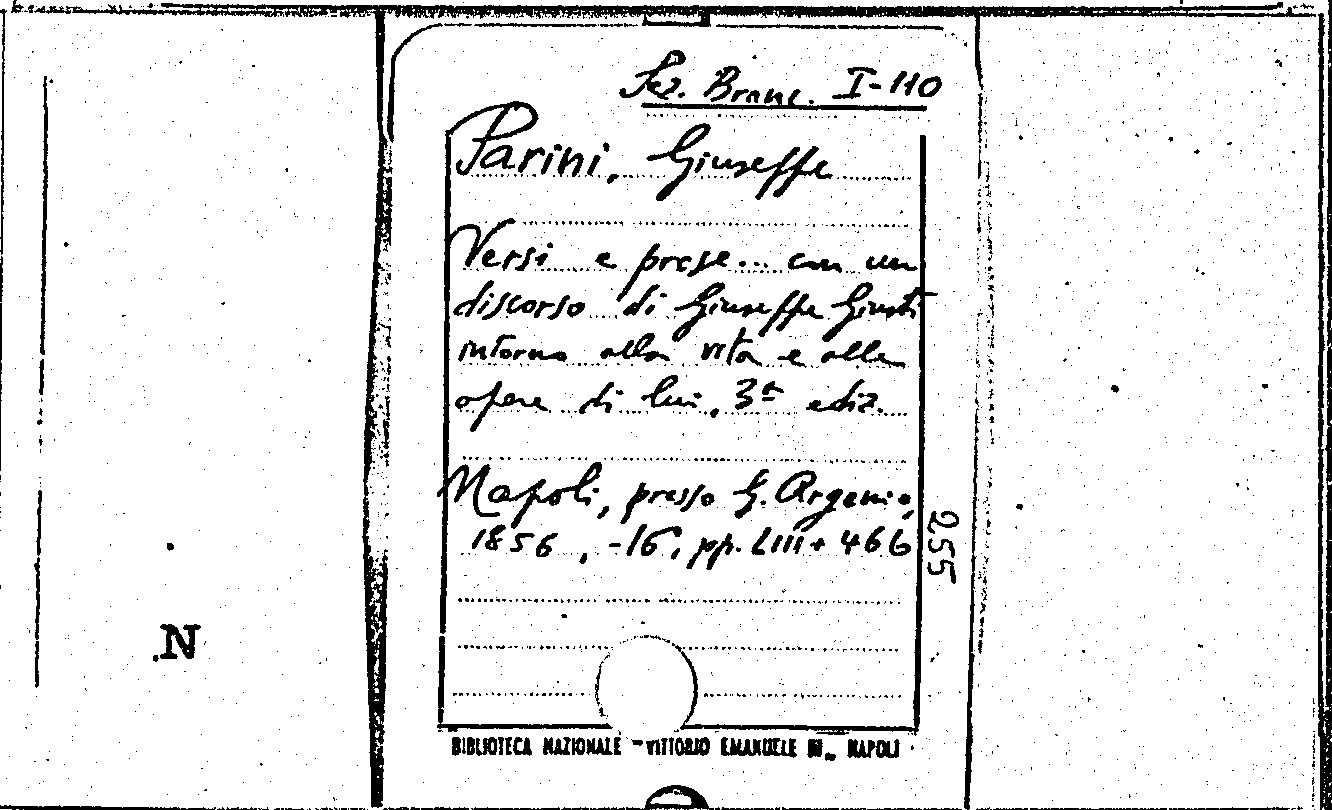 Sez. Branc. I-110
Parini, Giuseppe
Versi e prose... con un
discorso di Giuseppe Giusti
intorno alla vita e alle
opere di lui, 3ª ediz.
Napoli, presso G. Argenio,
1856, -16, pp. LIII+466
255
.N
BIBLIOTECA NAZIONALE - VITTORIO EMANUELE III - NAPOLI